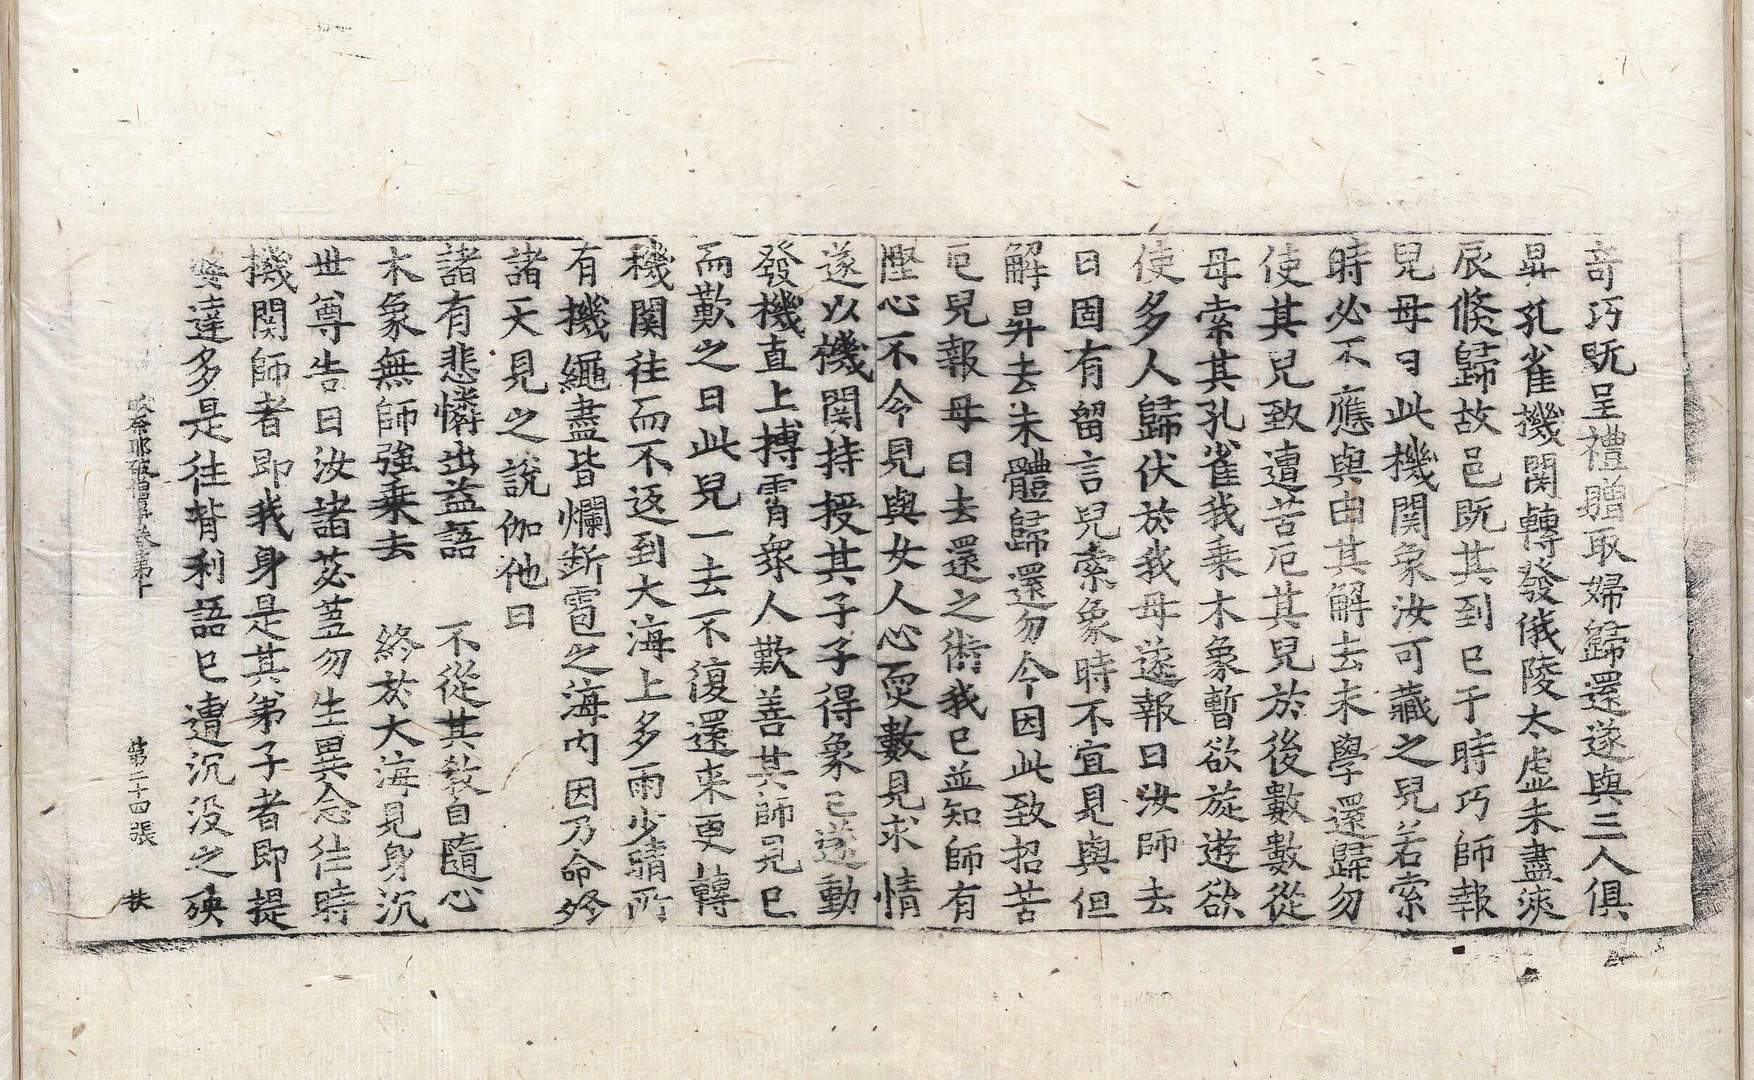 奇巧旣呈禮贈取婦歸還遂與三人俱
昇孔雀機關轉發俄陵太虛未盡浹
辰倏歸故邑旣其到已于時巧師報
兒母曰此機關象汝可藏之兒若索
時必不應與由其解去未學還歸勿
使其兒致遭苦厄其兒於後數數從
母索其孔雀我乘木象暫欲旋遊欲
使多人歸伏於我母遂報曰汝師去
日固有留言兒索象時不宜見與但
解昇去未體歸還勿今因此致招苦
厄兒報母曰去還之術我已並知師有
慳心不令見與女人心耎數見求情
遂以機關持授其子子得象已遂動
發機直上搏霄衆人歎善其師見已
而歎之曰此兒一去不復還來更轉
機關往而不返到大海上多雨少晴所
有機繩盡皆爛斷雹之海內因乃命終
諸天見之說伽他曰
諸有悲憐出益語　不從其教自隨心
木象無師強乘去　終於大海見身沉
世尊告曰汝諸苾蒭勿生異念往時
機關師者卽我身是其弟子者卽提
婆達多是往背利語已遭沉没之殃
奈耶破僧事卷第十　第二十四張　扶